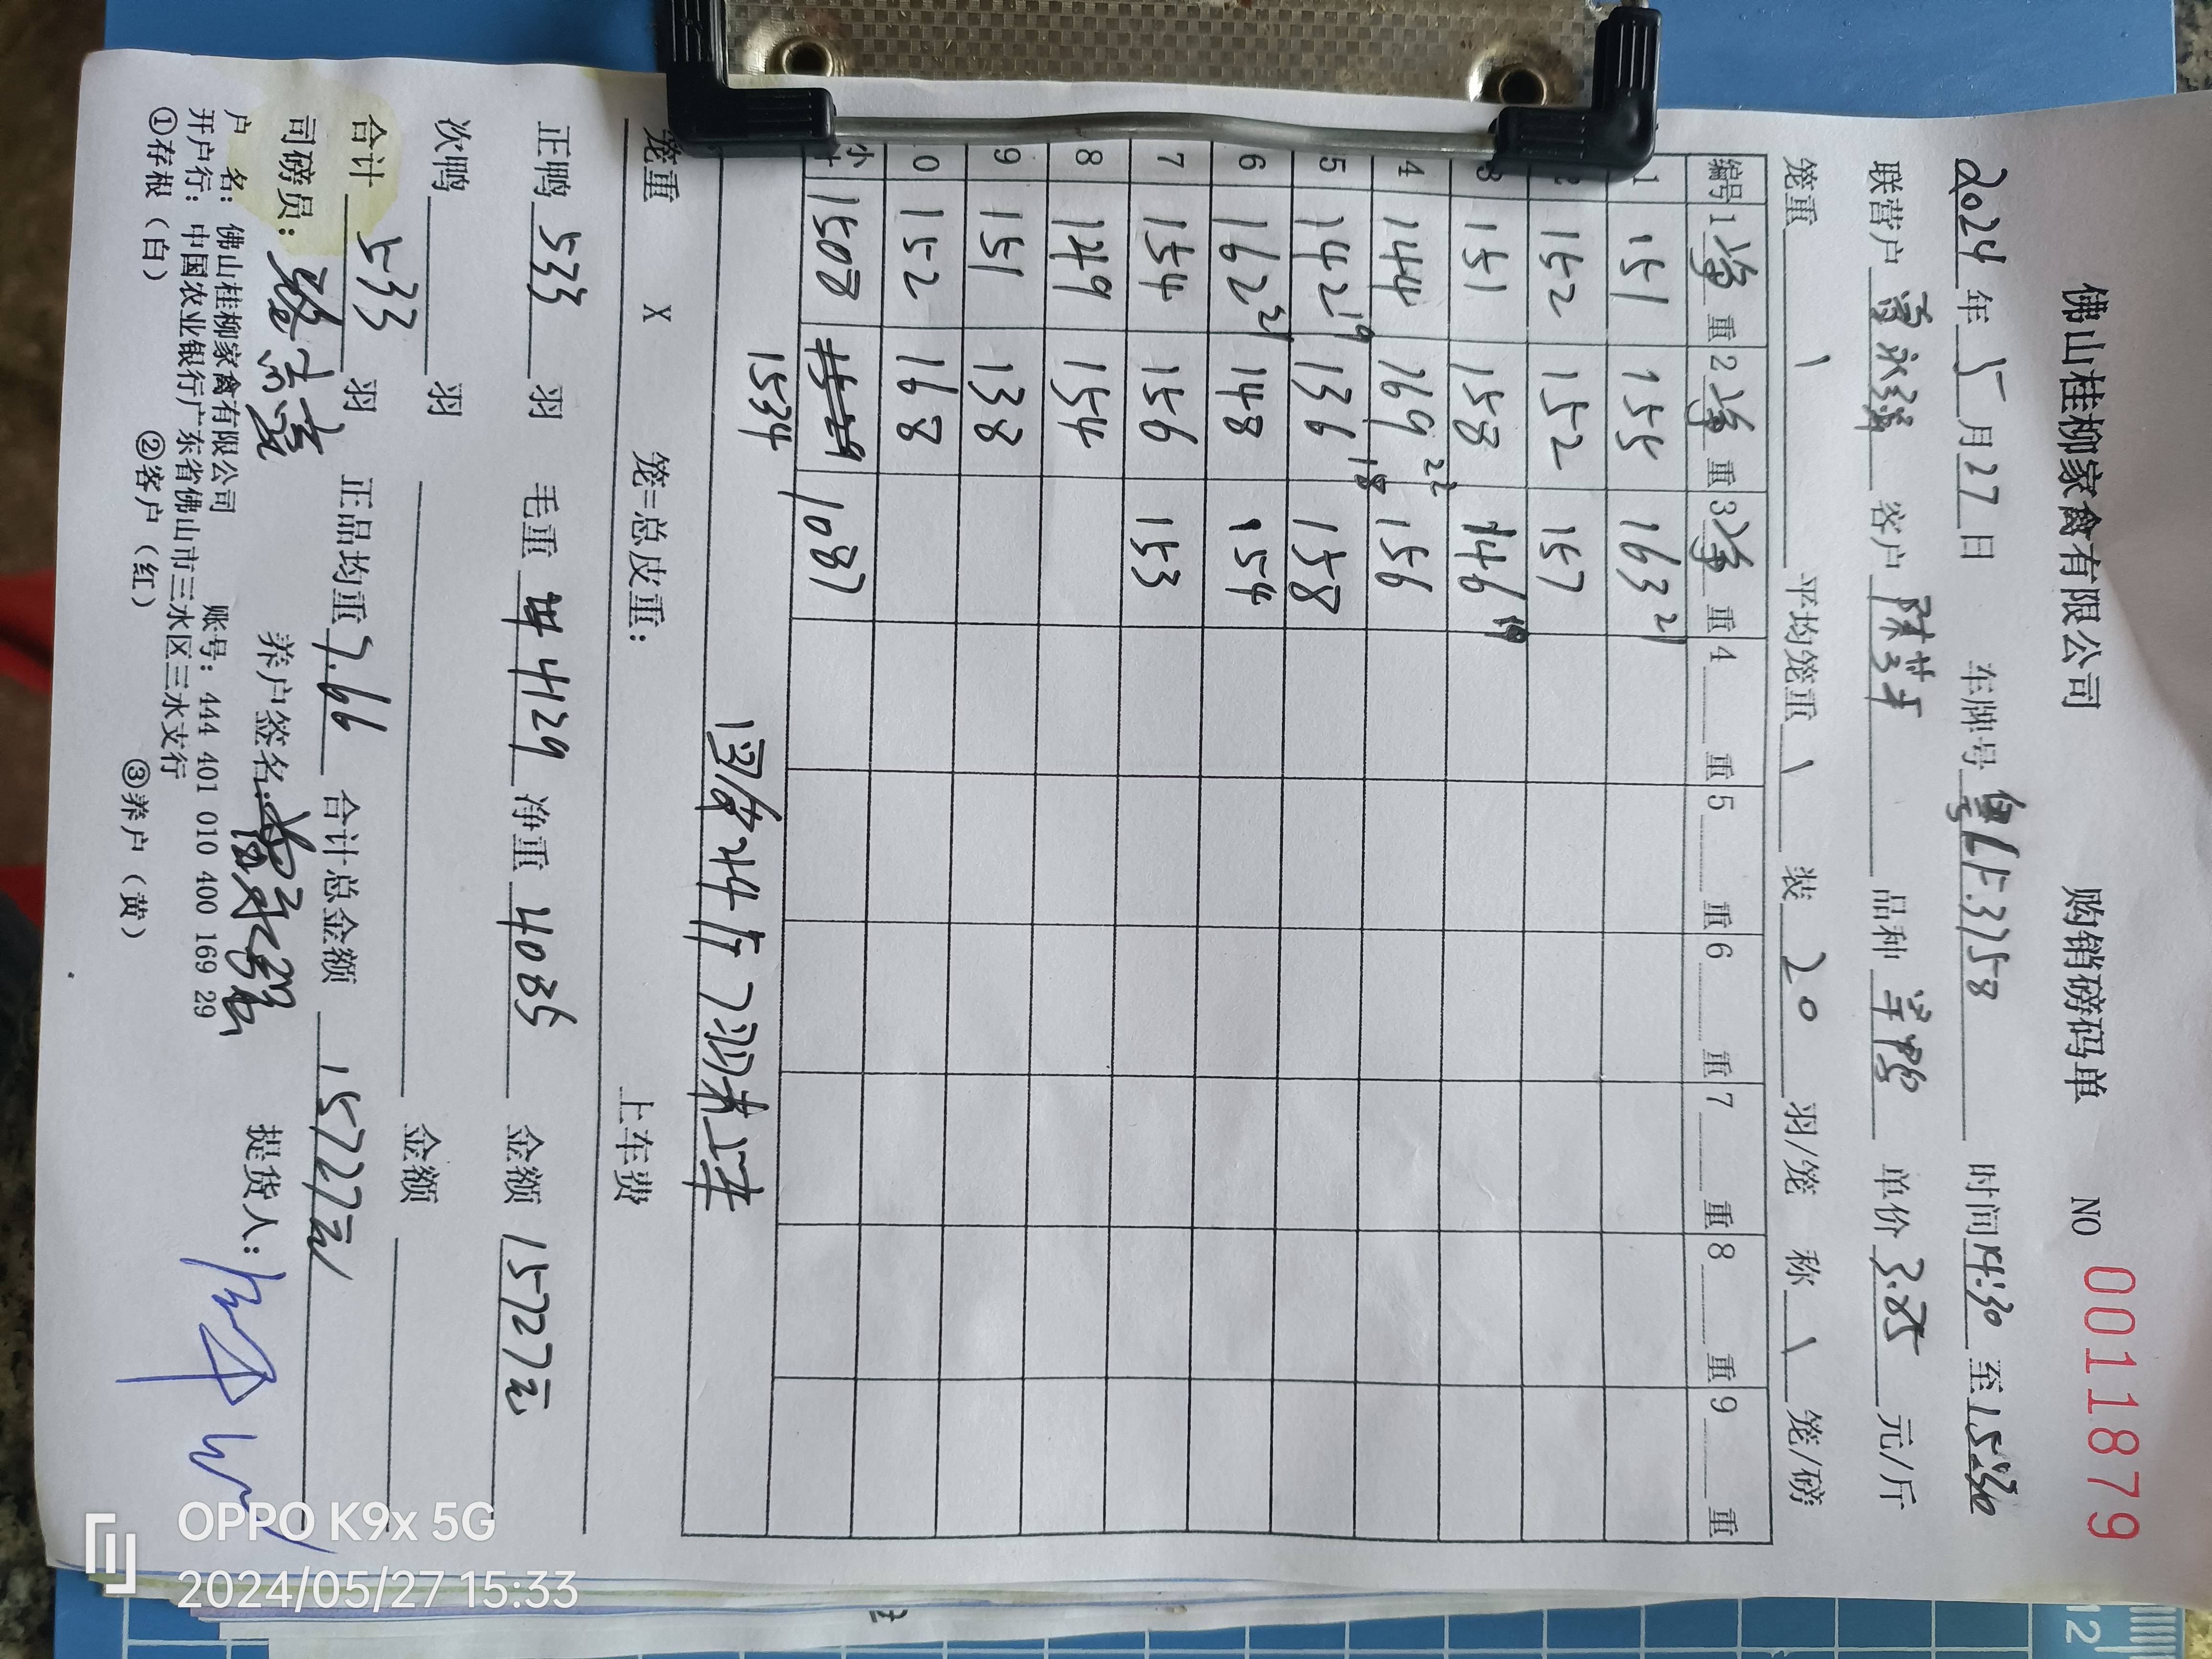 佛山桂柳家禽有限公司 购销磅码单 NO 0011879
2024年5月27日 车牌号粤LE3758 时间14:30至15:30
联营户 客户 品种 单价3.85元/斤
笼重 1 平均笼重 1 装 20 羽/笼 称 1 笼/磅
编号 1 净重 2 净重 3 净重 4 重 5 重 6 重 7 重 8 重 9 重
1 151 155 163 21
2 152 152 157
3 151 158 146 19
4 144 169 22 156
5 142 19 136 18 158
6 162 21 148 154
7 154 156 153
8 149 154
9 151 138
0 152 168
小 1508 1087
1534
7羽未上车
笼重 X 笼=总皮重: 上车费
正鸭 533 羽 毛重 4129 净重 4085 金额 15727元
次鸭 羽 金额
合计 533 羽 正品均重 7.66 合计总金额 15727元
司磅员: 养户签名: 提货人:
户 名: 佛山桂柳家禽有限公司 账号: 444 401 010 400 169 29
开户行: 中国农业银行广东省佛山市三水区三水支行
①存根(白) ②客户(红) ③养户(黄)
OPPO K9x 5G
2024/05/27 15:33
12